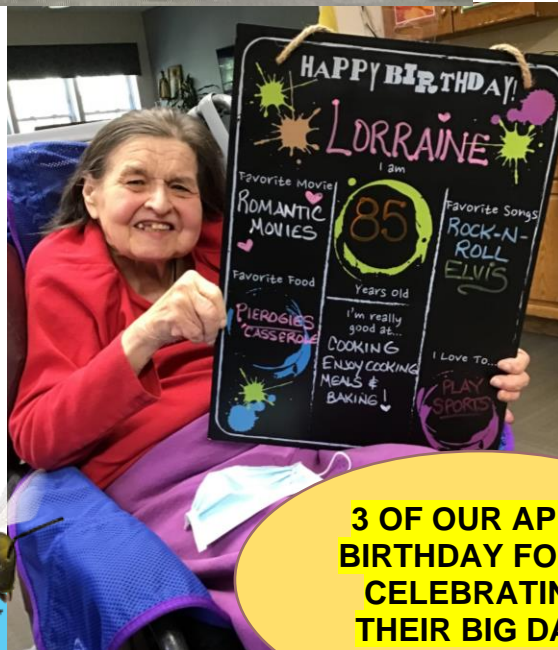 HAPPY BIRTHDAY!
LORRAINE
I am
85
Years Old
Favorite Movie
ROMANTIC
MOVIES
Favorite Food
PIEROGIES
CASSEROLE
I'm really
good at...
COOKING
ENJOY COOKING
MEALS &
BAKING!
Favorite Songs
ROCK-N-
ROLL
ELVIS
I Love To...
PLAY
SPORTS
3 OF OUR AP
BIRTHDAY FO
CELEBRATIN
THEIR BIG DA